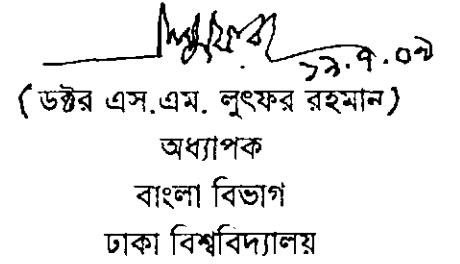 ১২.৭.০৯
( ডক্টর এস.এম. লুৎফর রহমান )
অধ্যাপক
বাংলা বিভাগ
ঢাকা বিশ্ববিদ্যালয়